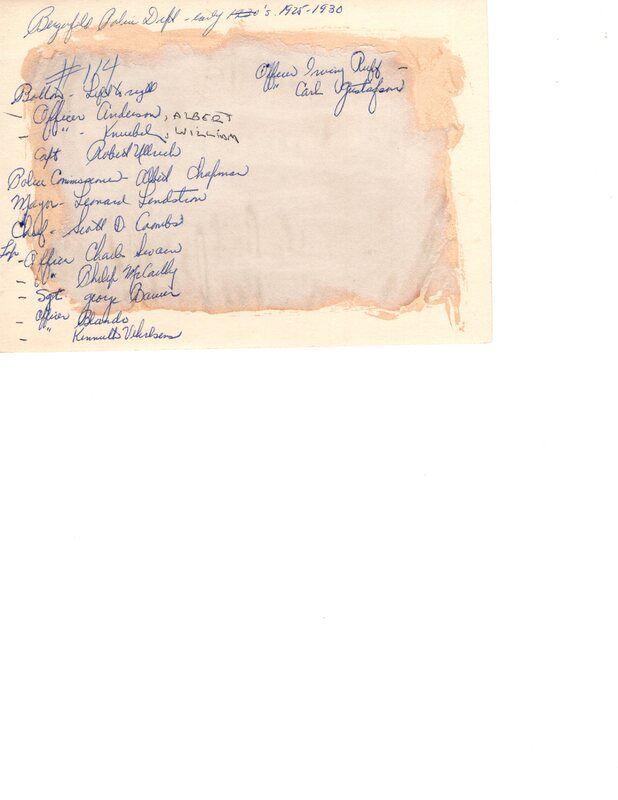 Bergenfield Police Dept - early 1930's. 1925-1930
#114
Bottom - Left to right
- Officer Anderson, ALBERT
- " - Knuebel, WILLIAM
Capt Robert Ullrich
Police Commissioner - Albert Chapman
Mayor - Leonard Lendstrom
Chief - Scott D. Coombs
Top - Officer Charles Swain
- " Philip McCailly
- Sgt George Bauer
- Officer Blando
- " Kenneth
Officer Irving Ruff -
" Carl Gustafson